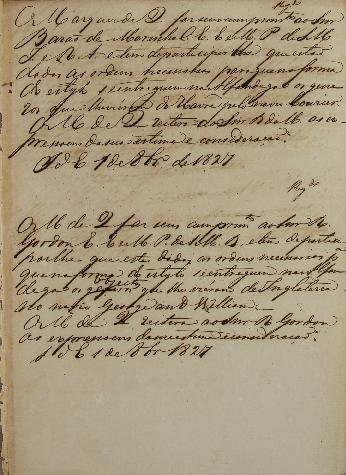 O Marquez de Q. faz seus cumprim.tos ao Snr
Barão de Mareuil E. E. e M. P. de S. M.
e tem de participar lhe que estão
dadas as ordens necessarias para que na forma
do estylo se entreguem na Alfandega os gene
ros que lhe vierão do Havre pelo navio Courier.
O M. de Q. reitera ao Snr B. de M. as ex
pressoens de sua estima e consideração.
S. d'E. 1 de 8br.o de 1827
O M. de Q. faz seus cumprim.tos ao Snr R.
Gordon E. E. e M. P. de S. M. B. e tem de participar
lhe que estão dadas as ordens necessarias p.a
que na forma do estylo se entreguem na Alfan
dega os objectos que lhe vierão de Inglaterra
no navio George and William.
O M. de Q. reitera ao Snr R. Gordon
as expressoens de sua estima e consideração.
S. d'E. 1 de 8br.o 1827